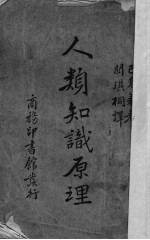 關琪桐譯
人類知識原理
商務印書館發行